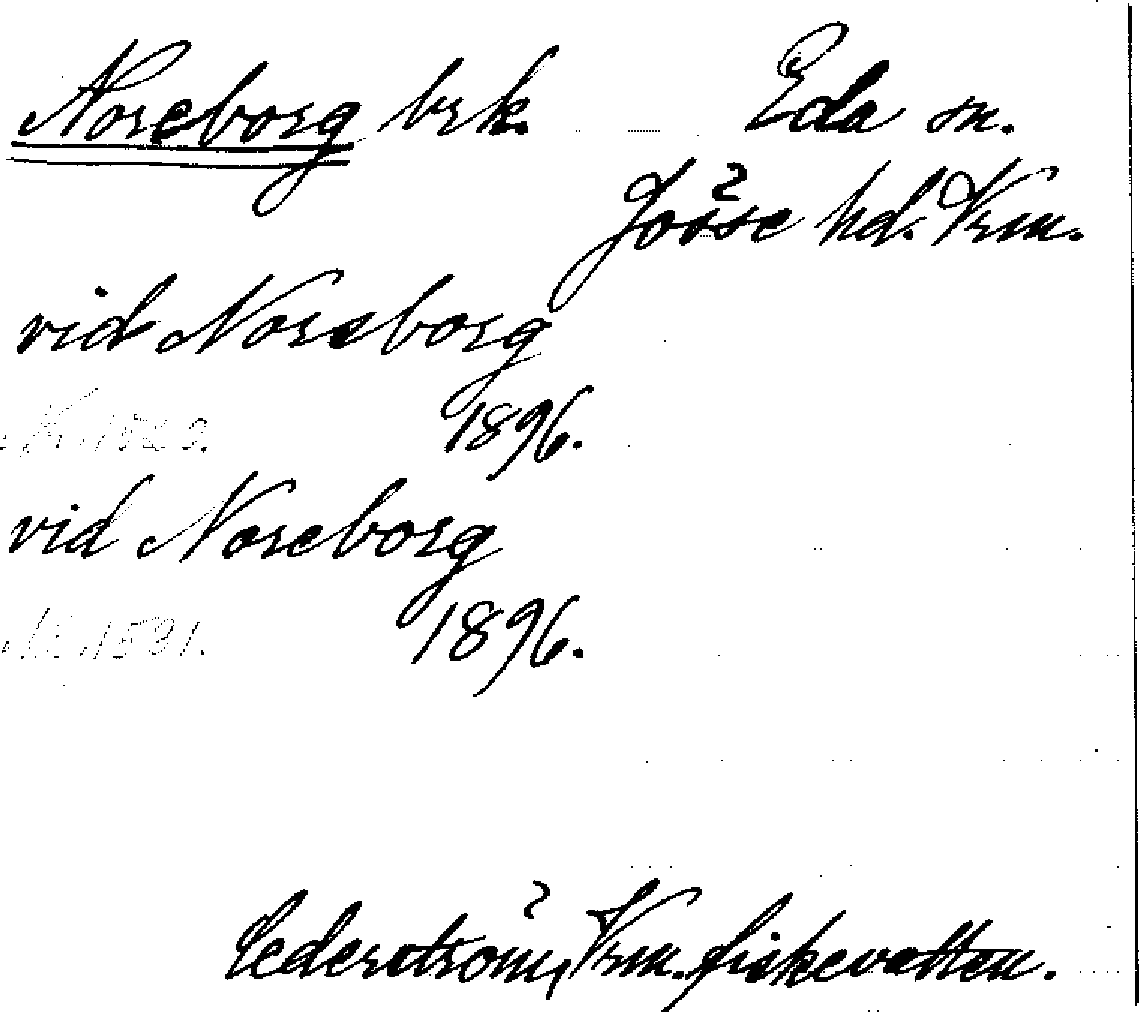 Noreborg brk. Eda sn.
Jösse hd. Vrm.
vid Noreborg
1896.
vid Noreborg
1896.
Cederström, Vrm. fiskevatten.